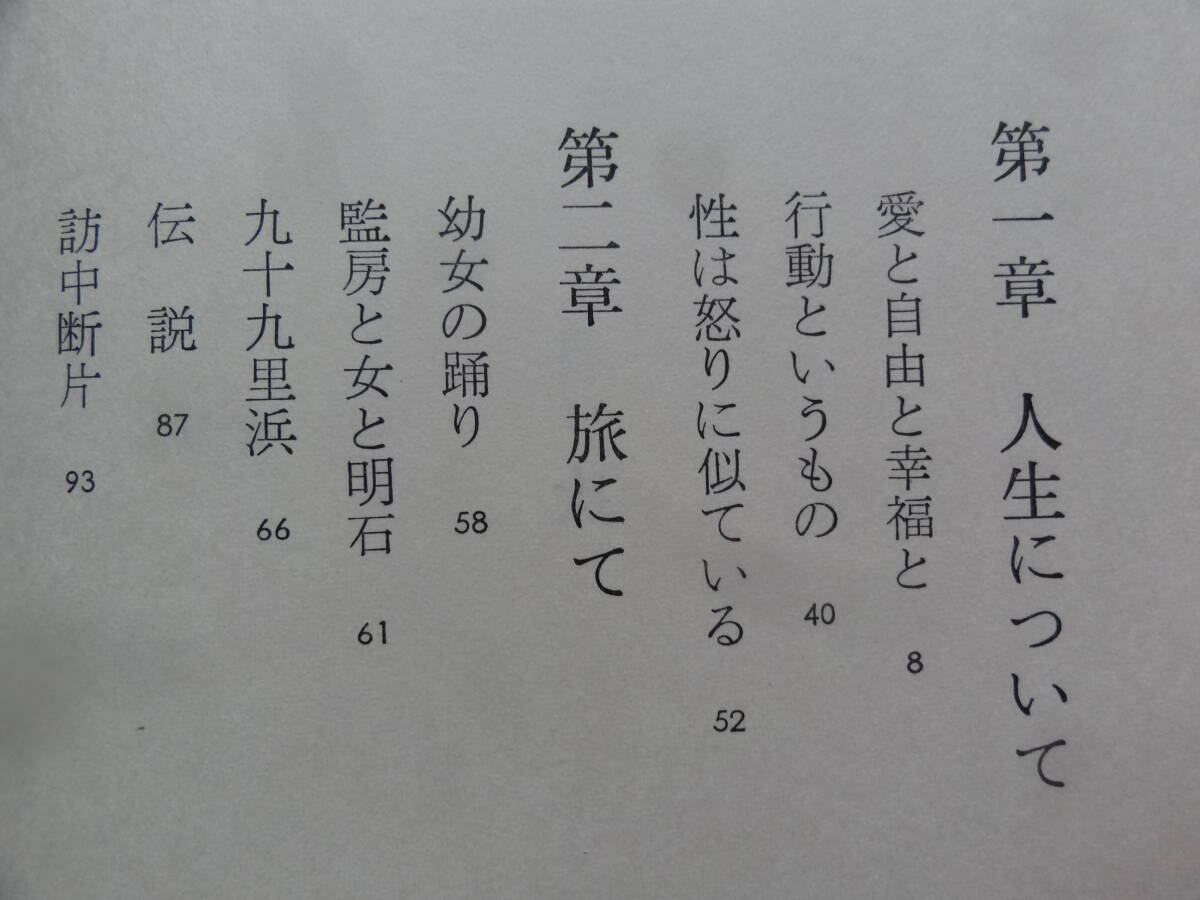 第一章　人生について
愛と自由と幸福と　8
行動というもの　40
性は怒りに似ている　52
第二章　旅にて
幼女の踊り　58
監房と女と明石　61
九十九里浜　66
伝　説　87
訪中断片　93